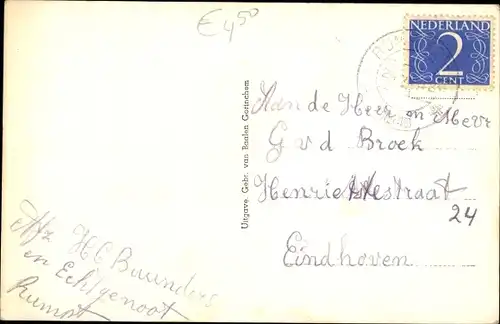 € 4,50
NEDERLAND
2
CENT
Aan de Heer en Mevr
G v d Broek
Henriettestraat
24
Eindhoven
Uitgave. Gebr. van Baalen Gorinchem
Afz H C Buunders
en Echtgenoot
Rumpt